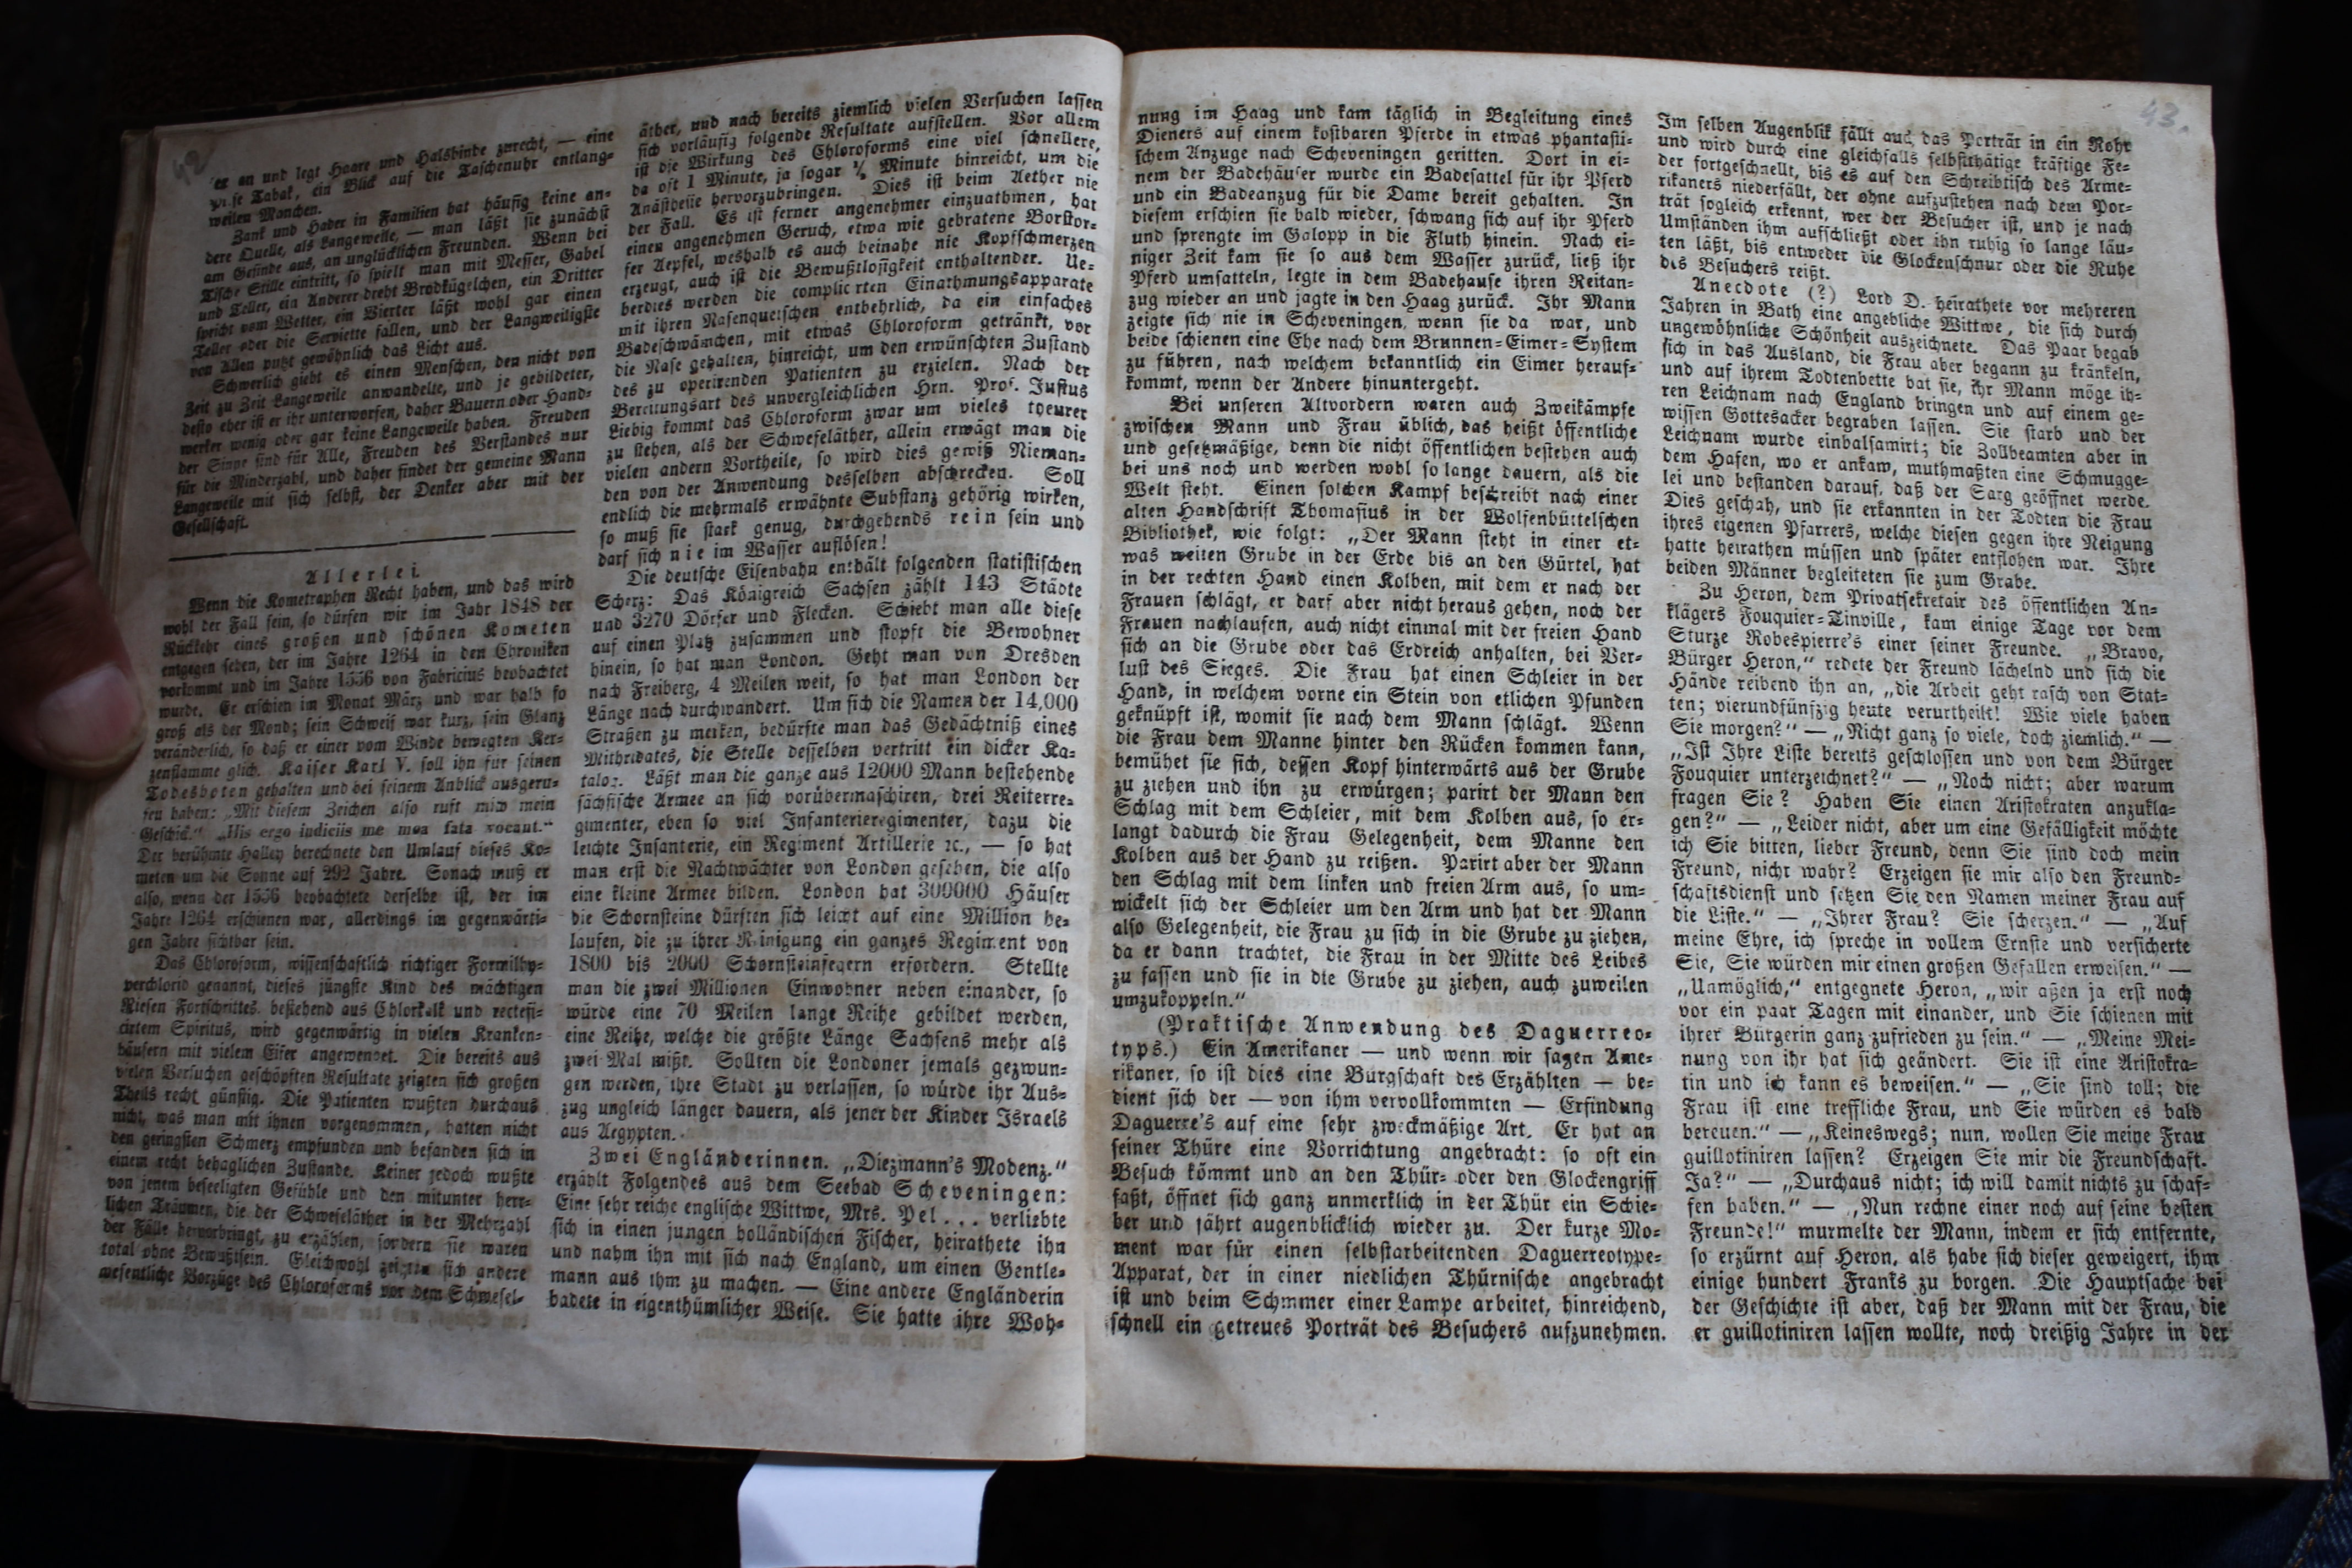 42
er an und legt Haare und Halsbinde zurecht, — eine
Prise Tabak, ein Blick auf die Taschenuhr entlang-
weilen Manchen.
Zank und Hader in Familien hat häufig keine an-
dere Quelle, als Langeweile, — man läßt sie zunächst
am Gesinde aus, an unglücklichen Freunden. Wenn bei
Tische Stille eintritt, so spielt man mit Messer, Gabel
und Teller, ein Anderer dreht Brodkügelchen, ein Dritter
spricht vom Wetter, ein Vierter läßt wohl gar einen
Teller oder die Serviette fallen, und der Langweiligste
von Allen putzt gewöhnlich das Licht aus.
Schwerlich giebt es einen Menschen, den nicht von
Zeit zu Zeit Langeweile anwandelte, und je gebildeter,
desto eher ist er ihr unterworfen, daher Bauern oder Hand-
werker wenig oder gar keine Langeweile haben. Freuden
der Sinne sind für Alle, Freuden des Verstandes nur
für die Minderzahl, und daher findet der gemeine Mann
Langeweile mit sich selbst, der Denker aber mit der
Gesellschaft.
Allerlei.
Wenn die Kometraphen Recht haben, und das wird
wohl der Fall sein, so dürfen wir im Jahr 1848 der
Rückkehr eines großen und schönen Kometen
entgegen sehen, der im Jahre 1264 in den Chroniken
vorkommt und im Jahre 1556 von Fabricius beobachtet
wurde. Er erschien im Monat März und war halb so
groß als der Mond; sein Schweif war kurz, sein Glanz
veränderlich, so daß er einer vom Winde bewegten Ker-
zenflamme glich. Kaiser Karl V. soll ihn für seinen
Todesboten gehalten und bei seinem Anblick ausgeru-
fen haben: „Mit diesem Zeichen also ruft mich mein
Geschick." „His ergo indiciis me mea fata vocant."
Der berühmte Halley berechnete den Umlauf dieses Ko-
meten um die Sonne auf 292 Jahre. Sonach muß er
also, wenn der 1556 beobachtete derselbe ist, der im
Jahre 1264 erschienen war, allerdings im gegenwärti-
gen Jahre sichtbar sein.
Das Chloroform, wissenschaftlich richtiger Formilhy-
perchlorid genannt, dieses jüngste Kind des mächtigen
Riesen Fortschrittes, bestehend aus Chlorkalk und rectefi-
cirtem Spiritus, wird gegenwärtig in vielen Kranken-
häusern mit vielem Eifer angewendet. Die bereits aus
vielen Versuchen geschöpften Resultate zeigten sich großen
Theils recht günstig. Die Patienten wußten durchaus
nicht, was man mit ihnen vorgenommen, hatten nicht
den geringsten Schmerz empfunden und befanden sich in
einem recht behaglichen Zustande. Keiner jedoch wußte
von jenem beseeligten Gefühle und den mitunter herr-
lichen Träumen, die der Schwefeläther in der Mehrzahl
der Fälle hervorbringt, zu erzählen, sondern sie waren
total ohne Bewußtsein. Gleichwohl zeigten sich andere
wesentliche Vorzüge des Chloroforms vor dem Schwefel-
äther, und nach bereits ziemlich vielen Versuchen lassen
sich vorläufig folgende Resultate aufstellen. Vor allem
ist die Wirkung des Chloroforms eine viel schnellere,
da oft 1 Minute, ja sogar Minute hinreicht, um die
Anästhesie hervorzubringen. Dies ist beim Aether nie
der Fall. Es ist ferner angenehmer einzuathmen, hat
einen angenehmen Geruch, etwa wie gebratene Borstor-
fer Aepfel, weshalb es auch beinahe nie Kopfschmerzen
erzeugt, auch ist die Bewußtlosigkeit enthaltender. Ue-
berdies werden die complicirten Einathmungsapparate
mit ihren Nasenquetschen entbehrlich, da ein einfaches
Badeschwämchen, mit etwas Chloroform getränkt, vor
die Nase gehalten, hinreicht, um den erwünschten Zustand
des zu operirenden Patienten zu erzielen. Nach der
Bereitungsart des unvergleichlichen Hrn. Prof. Justus
Liebig kommt das Chloroform zwar um vieles theurer
zu stehen, als der Schwefeläther, allein erwägt man die
vielen andern Vortheile, so wird dies gewiß Nieman-
den von der Anwendung desselben abschrecken. Soll
endlich die mehrmals erwähnte Substanz gehörig wirken,
so muß sie stark genug, durchgehends rein sein und
darf sich nie im Wasser auflösen!
Die deutsche Eisenbahn enthält folgenden statistischen
Scherz: Das Königreich Sachsen zählt 143 Städte
und 3270 Dörfer und Flecken. Schiebt man alle diese
auf einen Platz zusammen und stopft die Bewohner
hinein, so hat man London. Geht man von Dresden
nach Freiberg, 4 Meilen weit, so hat man London der
Länge nach durchwandert. Um sich die Namen der 14,000
Straßen zu merken, bedürfte man das Gedächtniß eines
Mithridates, die Stelle desselben vertritt ein dicker Ka-
talog. Läßt man die ganze aus 12000 Mann bestehende
sächsische Armee an sich vorübermaschiren, drei Reiterre-
gimenter, eben so viel Infanterieregimenter, dazu die
leichte Infanterie, ein Regiment Artillerie ꝛc., — so hat
man erst die Nachtwächter von London gesehen, die also
eine kleine Armee bilden. London hat 300000 Häuser
die Schornsteine dürften sich leicht auf eine Million be-
laufen, die zu ihrer Reinigung ein ganzes Regiment von
1800 bis 2000 Schornsteinfegern erfordern. Stellte
man die zwei Millionen Einwohner neben einander, so
würde eine 70 Meilen lange Reihe gebildet werden,
eine Reihe, welche die größte Länge Sachsens mehr als
zwei Mal mißt. Sollten die Londoner jemals gezwun-
gen werden, ihre Stadt zu verlassen, so würde ihr Aus-
zug ungleich länger dauern, als jener der Kinder Israels
aus Aegypten.
Zwei Engländerinnen. „Diezmann's Modenz."
erzählt Folgendes aus dem Seebad Scheveningen:
Eine sehr reiche englische Wittwe, Mrs. Pel... verliebte
sich in einen jungen holländischen Fischer, heirathete ihn
und nahm ihn mit sich nach England, um einen Gentle-
mann aus ihm zu machen. — Eine andere Engländerin
badete in eigenthümlicher Weise. Sie hatte ihre Woh-
43.
nung im Haag und kam täglich in Begleitung eines
Dieners auf einem kostbaren Pferde in etwas phantasti-
schem Anzuge nach Scheveningen geritten. Dort in ei-
nem der Badehäuser wurde ein Badesattel für ihr Pferd
und ein Badeanzug für die Dame bereit gehalten. In
diesem erschien sie bald wieder, schwang sich auf ihr Pferd
und sprengte im Galopp in die Fluth hinein. Nach ei-
niger Zeit kam sie so aus dem Wasser zurück, ließ ihr
Pferd umsatteln, legte in dem Badehause ihren Reitan-
zug wieder an und jagte in den Haag zurück. Ihr Mann
zeigte sich nie in Scheveningen, wenn sie da war, und
beide schienen eine Ehe nach dem Brunnen-Eimer-System
zu führen, nach welchem bekanntlich ein Eimer herauf-
kommt, wenn der Andere hinuntergeht.
Bei unseren Altvordern waren auch Zweikämpfe
zwischen Mann und Frau üblich, das heißt öffentliche
und gesetzmäßige, denn die nicht öffentlichen bestehen auch
bei uns noch und werden wohl so lange dauern, als die
Welt steht. Einen solchen Kampf beschreibt nach einer
alten Handschrift Thomasius in der Wolfenbüttelschen
Bibliothek, wie folgt: „Der Mann steht in einer et-
was weiten Grube in der Erde bis an den Gürtel, hat
in der rechten Hand einen Kolben, mit dem er nach der
Frauen schlägt, er darf aber nicht heraus gehen, noch der
Frauen nachlaufen, auch nicht einmal mit der freien Hand
sich an die Grube oder das Erdreich anhalten, bei Ver-
lust des Sieges. Die Frau hat einen Schleier in der
Hand, in welchem vorne ein Stein von etlichen Pfunden
geknüpft ist, womit sie nach dem Mann schlägt. Wenn
die Frau dem Manne hinter den Rücken kommen kann,
bemühet sie sich, dessen Kopf hinterwärts aus der Grube
zu ziehen und ihn zu erwürgen; parirt der Mann den
Schlag mit dem Schleier, mit dem Kolben aus, so er-
langt dadurch die Frau Gelegenheit, dem Manne den
Kolben aus der Hand zu reißen. Parirt aber der Mann
den Schlag mit dem linken und freien Arm aus, so um-
wickelt sich der Schleier um den Arm und hat der Mann
also Gelegenheit, die Frau zu sich in die Grube zu ziehen,
da er dann trachtet, die Frau in der Mitte des Leibes
zu fassen und sie in die Grube zu ziehen, auch zuweilen
umzukoppeln."
(Praktische Anwendung des Daguerreo-
typs.) Ein Amerikaner — und wenn wir sagen Ame-
rikaner, so ist dies eine Bürgschaft des Erzählten — be-
dient sich der — von ihm vervollkommten — Erfindung
Daguerre's auf eine sehr zweckmäßige Art. Er hat an
seiner Thüre eine Vorrichtung angebracht: so oft ein
Besuch kömmt und an den Thür- oder den Glockengriff
faßt, öffnet sich ganz unmerklich in der Thür ein Schie-
ber und fährt augenblicklich wieder zu. Der kurze Mo-
ment war für einen selbstarbeitenden Daguerreotype-
Apparat, der in einer niedlichen Thürnische angebracht
ist und beim Schimmer einer Lampe arbeitet, hinreichend,
schnell ein getreues Porträt des Besuchers aufzunehmen.
Im selben Augenblik fällt auch das Porträt in ein Rohr
und wird durch eine gleichfalls selbstthätige kräftige Fe-
der fortgeschnellt, bis es auf den Schreibtisch des Ame-
rikaners niederfällt, der ohne aufzustehen nach dem Por-
trät sogleich erkennt, wer der Besucher ist, und je nach
Umständen ihm aufschließt oder ihn ruhig so lange läu-
ten läßt, bis entweder die Glockenschnur oder die Ruhe
des Besuchers reißt.
Anecdote (?) Lord D. heirathete vor mehreren
Jahren in Bath eine angebliche Wittwe, die sich durch
ungewöhnliche Schönheit auszeichnete. Das Paar begab
sich in das Ausland, die Frau aber begann zu kränkeln,
und auf ihrem Todtenbette bat sie, ihr Mann möge ih-
ren Leichnam nach England bringen und auf einem ge-
wissen Gottesacker begraben lassen. Sie starb und der
Leichnam wurde einbalsamirt; die Zollbeamten aber in
dem Hafen, wo er ankam, muthmaßten eine Schmugge-
lei und bestanden darauf, daß der Sarg geöffnet werde.
Dies geschah, und sie erkannten in der Todten die Frau
ihres eigenen Pfarrers, welche diesen gegen ihre Neigung
hatte heirathen müssen und später entflohen war. Ihre
beiden Männer begleiteten sie zum Grabe.
Zu Heron, dem Privatsekretair des öffentlichen An-
klägers Fouquier-Tinville, kam einige Tage vor dem
Sturze Robespierre's einer seiner Freunde. „Bravo,
Bürger Heron," redete der Freund lächelnd und sich die
Hände reibend ihn an, „die Arbeit geht rasch von Stat-
ten; vierundfünfzig heute verurtheilt! Wie viele haben
Sie morgen?" — „Nicht ganz so viele, doch ziemlich." —
„Ist Ihre Liste bereits geschlossen und von dem Bürger
Fouquier unterzeichnet?" — „Noch nicht; aber warum
fragen Sie? Haben Sie einen Aristokraten anzukla-
gen?" — „Leider nicht, aber um eine Gefälligkeit möchte
ich Sie bitten, lieber Freund, denn Sie sind doch mein
Freund, nicht wahr? Erzeigen sie mir also den Freund-
schaftsdienst und setzen Sie den Namen meiner Frau auf
die Liste." — „Ihrer Frau? Sie scherzen." — „Auf
meine Ehre, ich spreche in vollem Ernste und versicherte
Sie, Sie würden mir einen großen Gefallen erweisen." —
„Unmöglich," entgegnete Heron, „wir aßen ja erst noch
vor ein paar Tagen mit einander, und Sie schienen mit
ihrer Bürgerin ganz zufrieden zu sein." — „Meine Mei-
nung von ihr hat sich geändert. Sie ist eine Aristokra-
tin und ich kann es beweisen." — „Sie sind toll; die
Frau ist eine treffliche Frau, und Sie würden es bald
bereuen." — „Keineswegs; nun, wollen Sie meine Frau
guillotiniren lassen? Erzeigen Sie mir die Freundschaft.
Ja?" — „Durchaus nicht; ich will damit nichts zu schaf-
fen haben." — „Nun rechne einer noch auf seine besten
Freunde!" murmelte der Mann, indem er sich entfernte,
so erzürnt auf Heron, als habe sich dieser geweigert, ihm
einige hundert Franks zu borgen. Die Hauptsache bei
der Geschichte ist aber, daß der Mann mit der Frau, die
er guillotiniren lassen wollte, noch dreißig Jahre in der